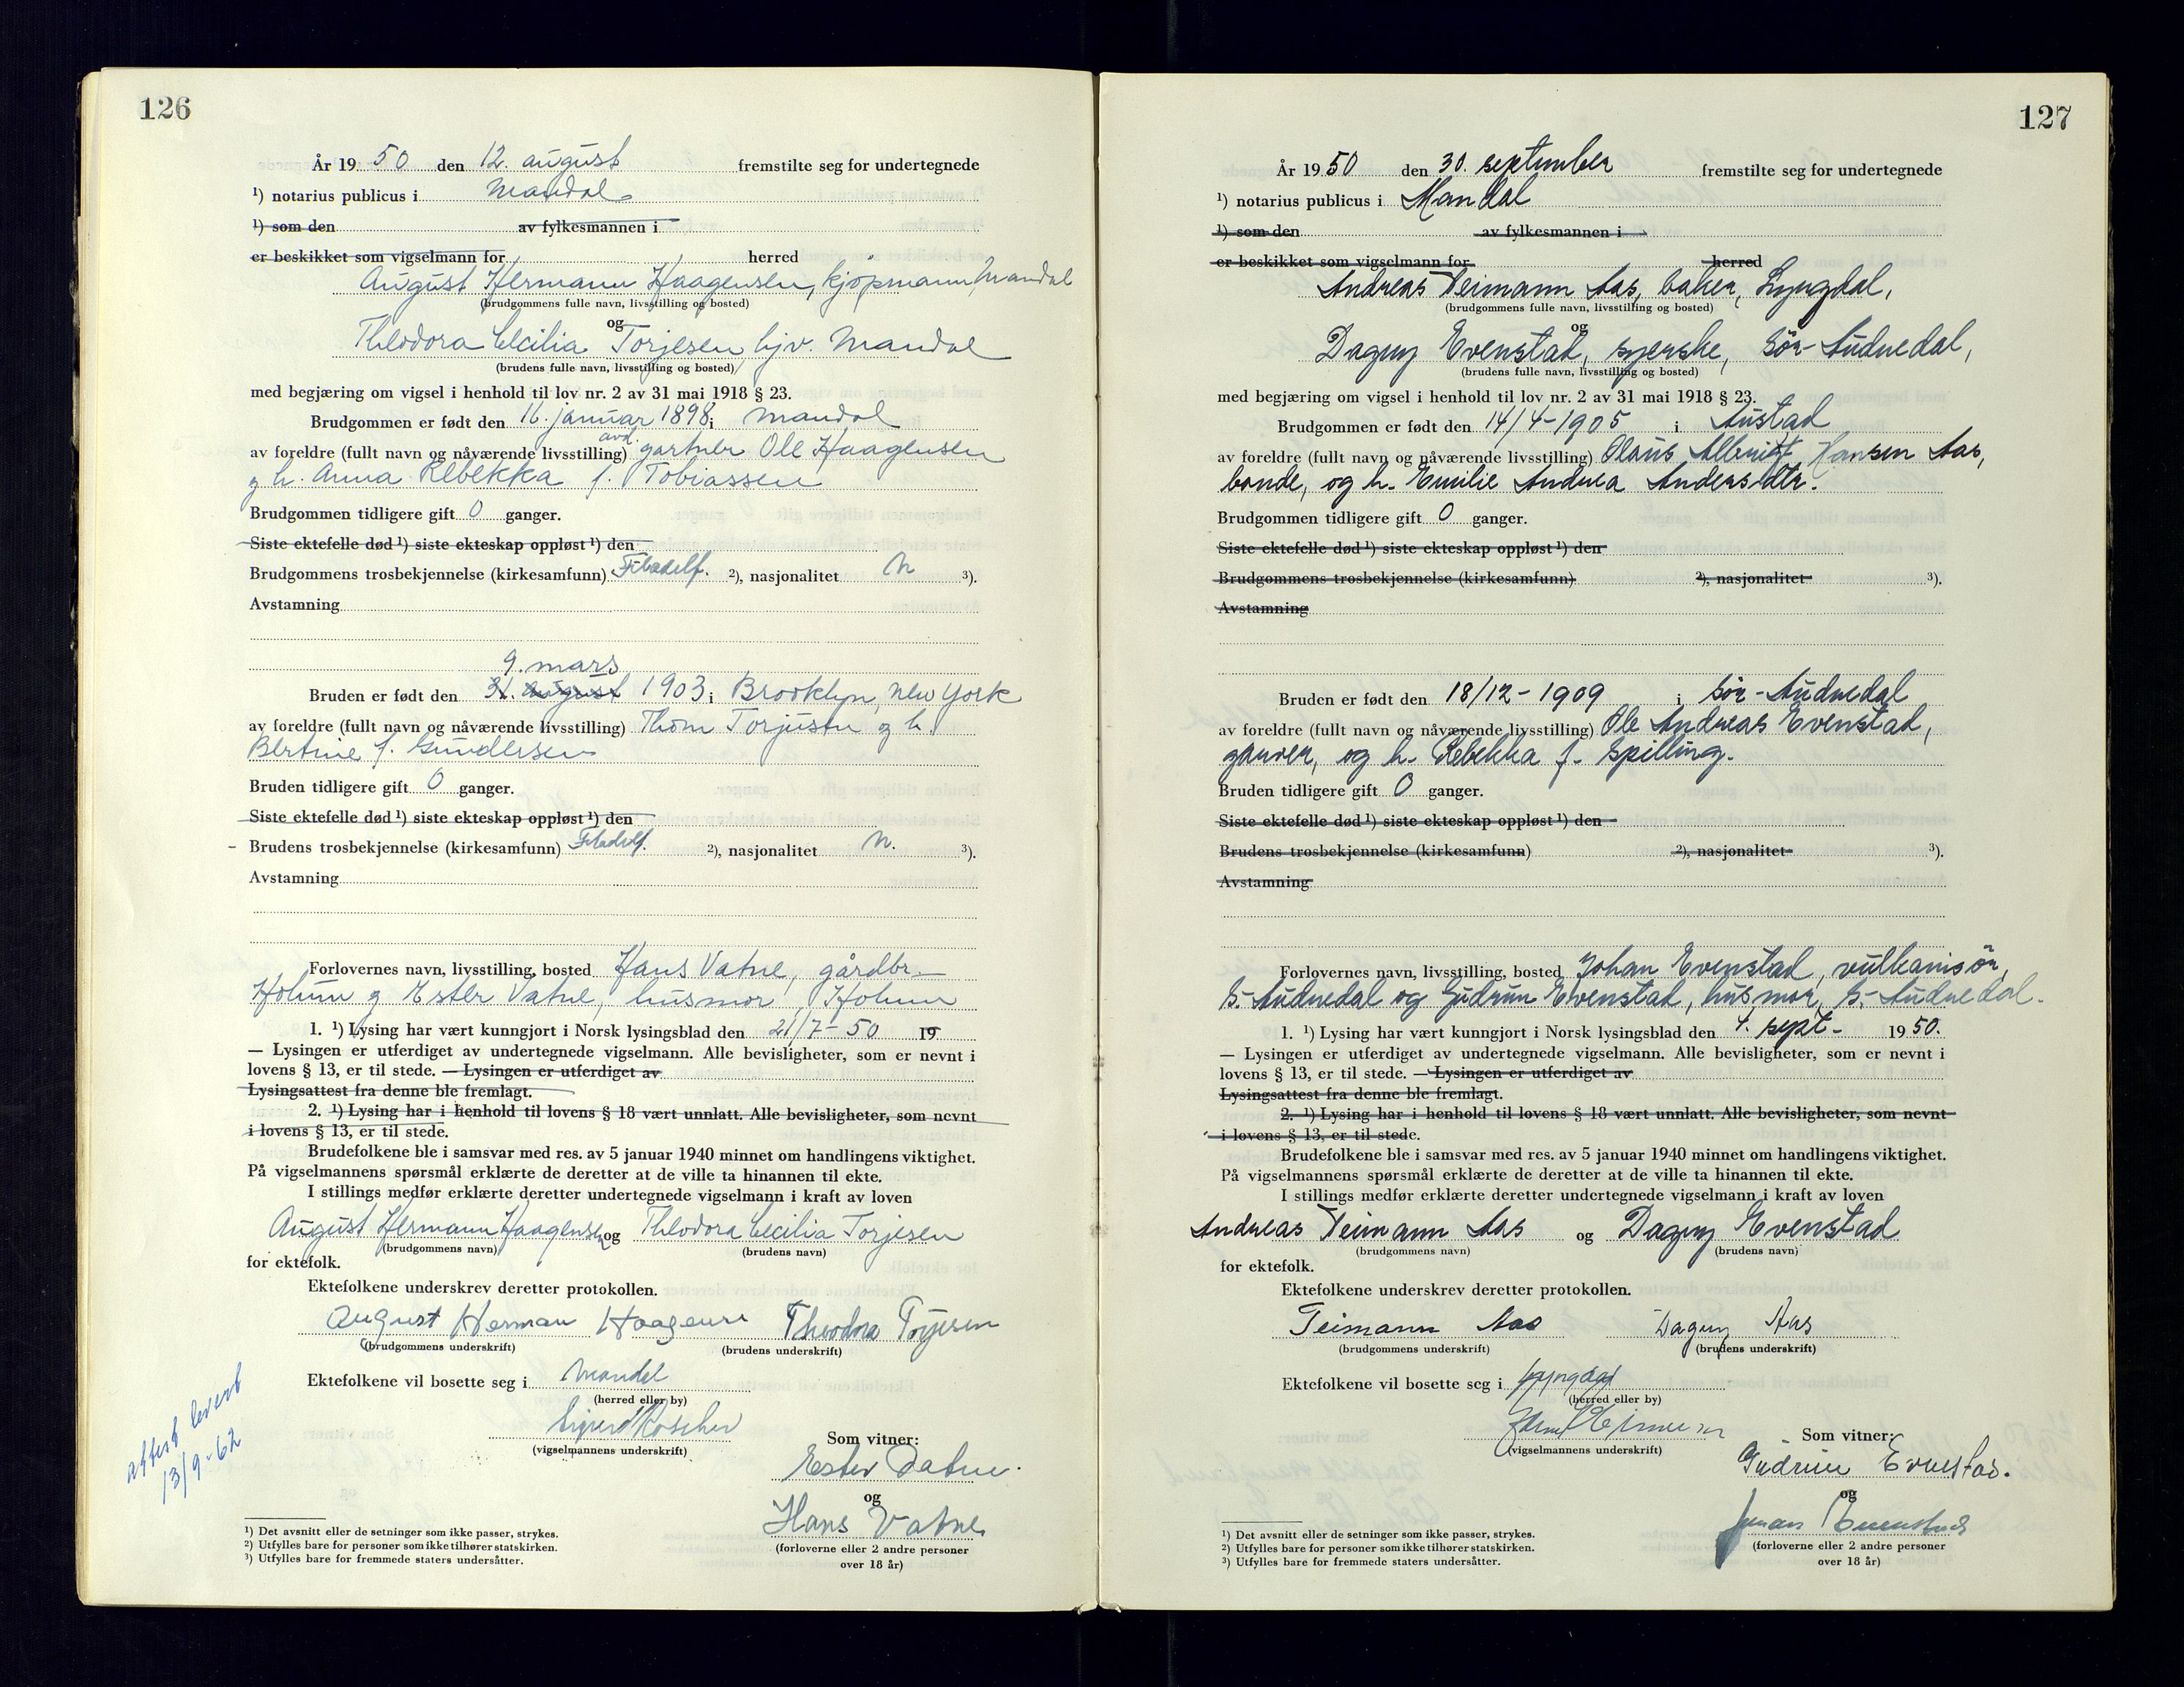 126
År 19 50 den 12. august fremstilte seg for undertegnede
¹) notarius publicus i Mandal
¹) som den av fylkesmannen i
er beskikket som vigselmann for herred
August Hermann Haagensen, kjøpmann, Mandal
(brudgommens fulle navn, livsstilling og bosted)
og
Theodora Cecilia Torjesen hjv. Mandal
(brudens fulle navn, livsstilling og bosted)
med begjæring om vigsel i henhold til lov nr. 2 av 31 mai 1918 § 23.
Brudgommen er født den 16. januar 1898 i Mandal
avd.
av foreldre (fullt navn og nåværende livsstilling) gartner Ole Haagensen
og h. Anna Rebekka f. Tobiassen
Brudgommen tidligere gift 0 ganger.
Siste ektefelle død ¹) siste ekteskap oppløst ¹) den
Brudgommens trosbekjennelse (kirkesamfunn) Filadelf. ²), nasjonalitet N ³).
Avstamning
9. mars
Bruden er født den 31. august 1903 i Brooklyn, New York
av foreldre (fullt navn og nåværende livsstilling) Thom Torjusen og h.
Bertine f. Gundersen
Bruden tidligere gift 0 ganger.
Siste ektefelle død ¹) siste ekteskap oppløst ¹) den
- Brudens trosbekjennelse (kirkesamfunn) Filadelf. ²), nasjonalitet N. ³).
Avstamning
Forlovernes navn, livsstilling, bosted Hans Vatne, gårdbr.
Holum og Ester Vatne, husmor, Holum
1. ¹) Lysing har vært kunngjort i Norsk lysingsblad den 21/7-50 19
— Lysingen er utferdiget av undertegnede vigselmann. Alle bevisligheter, som er nevnt i
lovens § 13, er til stede. — Lysingen er utferdiget av
Lysingsattest fra denne ble fremlagt.
2. ¹) Lysing har i henhold til lovens § 18 vært unnlatt. Alle bevisligheter, som nevnt
i lovens § 13, er til stede.
Brudefolkene ble i samsvar med res. av 5 januar 1940 minnet om handlingens viktighet.
På vigselmannens spørsmål erklærte de deretter at de ville ta hinannen til ekte.
I stillings medfør erklærte deretter undertegnede vigselmann i kraft av loven
August Hermann Haagensen og Theodora Cecilia Torjesen
(brudgommens navn) (brudens navn)
for ektefolk.
Ektefolkene underskrev deretter protokollen.
August Herman Haagensen Theodora Torjesen
(brudgommens underskrift) (brudens underskrift)
Ektefolkene vil bosette seg i Mandal
(herred eller by)
Sigurd Roscher
(vigselmannens underskrift)
Som vitner:
Ester Vatne.
og
Hans Vatne
(forloverne eller 2 andre personer
over 18 år)
attest levert
13/9-62
¹) Det avsnitt eller de setninger som ikke passer, strykes.
²) Utfylles bare for personer som ikke tilhører statskirken.
³) Utfylles bare for fremmede staters undersåtter.
127
År 19 50 den 30. september fremstilte seg for undertegnede
¹) notarius publicus i Mandal
¹) som den av fylkesmannen i
er beskikket som vigselmann for herred
Andreas Teimann Aas, baker, Lyngdal,
(brudgommens fulle navn, livsstilling og bosted)
og
Dagny Evenstad, syerske, Sør-Audnedal,
(brudens fulle navn, livsstilling og bosted)
med begjæring om vigsel i henhold til lov nr. 2 av 31 mai 1918 § 23.
Brudgommen er født den 14/4-1905 i Austad
av foreldre (fullt navn og nåværende livsstilling) Olaus Hansen Aas,
bonde, og h. Emilie Andrea Andersdtr.
Brudgommen tidligere gift 0 ganger.
Siste ektefelle død ¹) siste ekteskap oppløst ¹) den
Brudgommens trosbekjennelse (kirkesamfunn) ²), nasjonalitet ³).
Avstamning
Bruden er født den 18/12-1909 i Sør-Audnedal
av foreldre (fullt navn og nåværende livsstilling) Ole Andreas Evenstad,
garver, og h. Rebekka f. Spilling.
Bruden tidligere gift 0 ganger.
Siste ektefelle død ¹) siste ekteskap oppløst ¹) den
Brudens trosbekjennelse (kirkesamfunn) ²), nasjonalitet ³).
Avstamning
Forlovernes navn, livsstilling, bosted Johan Evenstad, vulkanisør,
S.-Audnedal og Gudrun Evenstad, husmor, S.-Audnedal.
1. ¹) Lysing har vært kunngjort i Norsk lysingsblad den 4. sept- 19 50.
— Lysingen er utferdiget av undertegnede vigselmann. Alle bevisligheter, som er nevnt i
lovens § 13, er til stede. — Lysingen er utferdiget av
Lysingsattest fra denne ble fremlagt.
2. ¹) Lysing har i henhold til lovens § 18 vært unnlatt. Alle bevisligheter, som nevnt
i lovens § 13, er til stede.
Brudefolkene ble i samsvar med res. av 5 januar 1940 minnet om handlingens viktighet.
På vigselmannens spørsmål erklærte de deretter at de ville ta hinannen til ekte.
I stillings medfør erklærte deretter undertegnede vigselmann i kraft av loven
Andreas Teimann Aas og Dagny Evenstad
(brudgommens navn) (brudens navn)
for ektefolk.
Ektefolkene underskrev deretter protokollen.
Teimann Aas Dagny Aas
(brudgommens underskrift) (brudens underskrift)
Ektefolkene vil bosette seg i Lyngdal
(herred eller by)
(vigselmannens underskrift)
Som vitner:
Gudrun Evenstad.
og
Johan Evenstad
(forloverne eller 2 andre personer
over 18 år)
¹) Det avsnitt eller de setninger som ikke passer, strykes.
²) Utfylles bare for personer som ikke tilhører statskirken.
³) Utfylles bare for fremmede staters undersåtter.